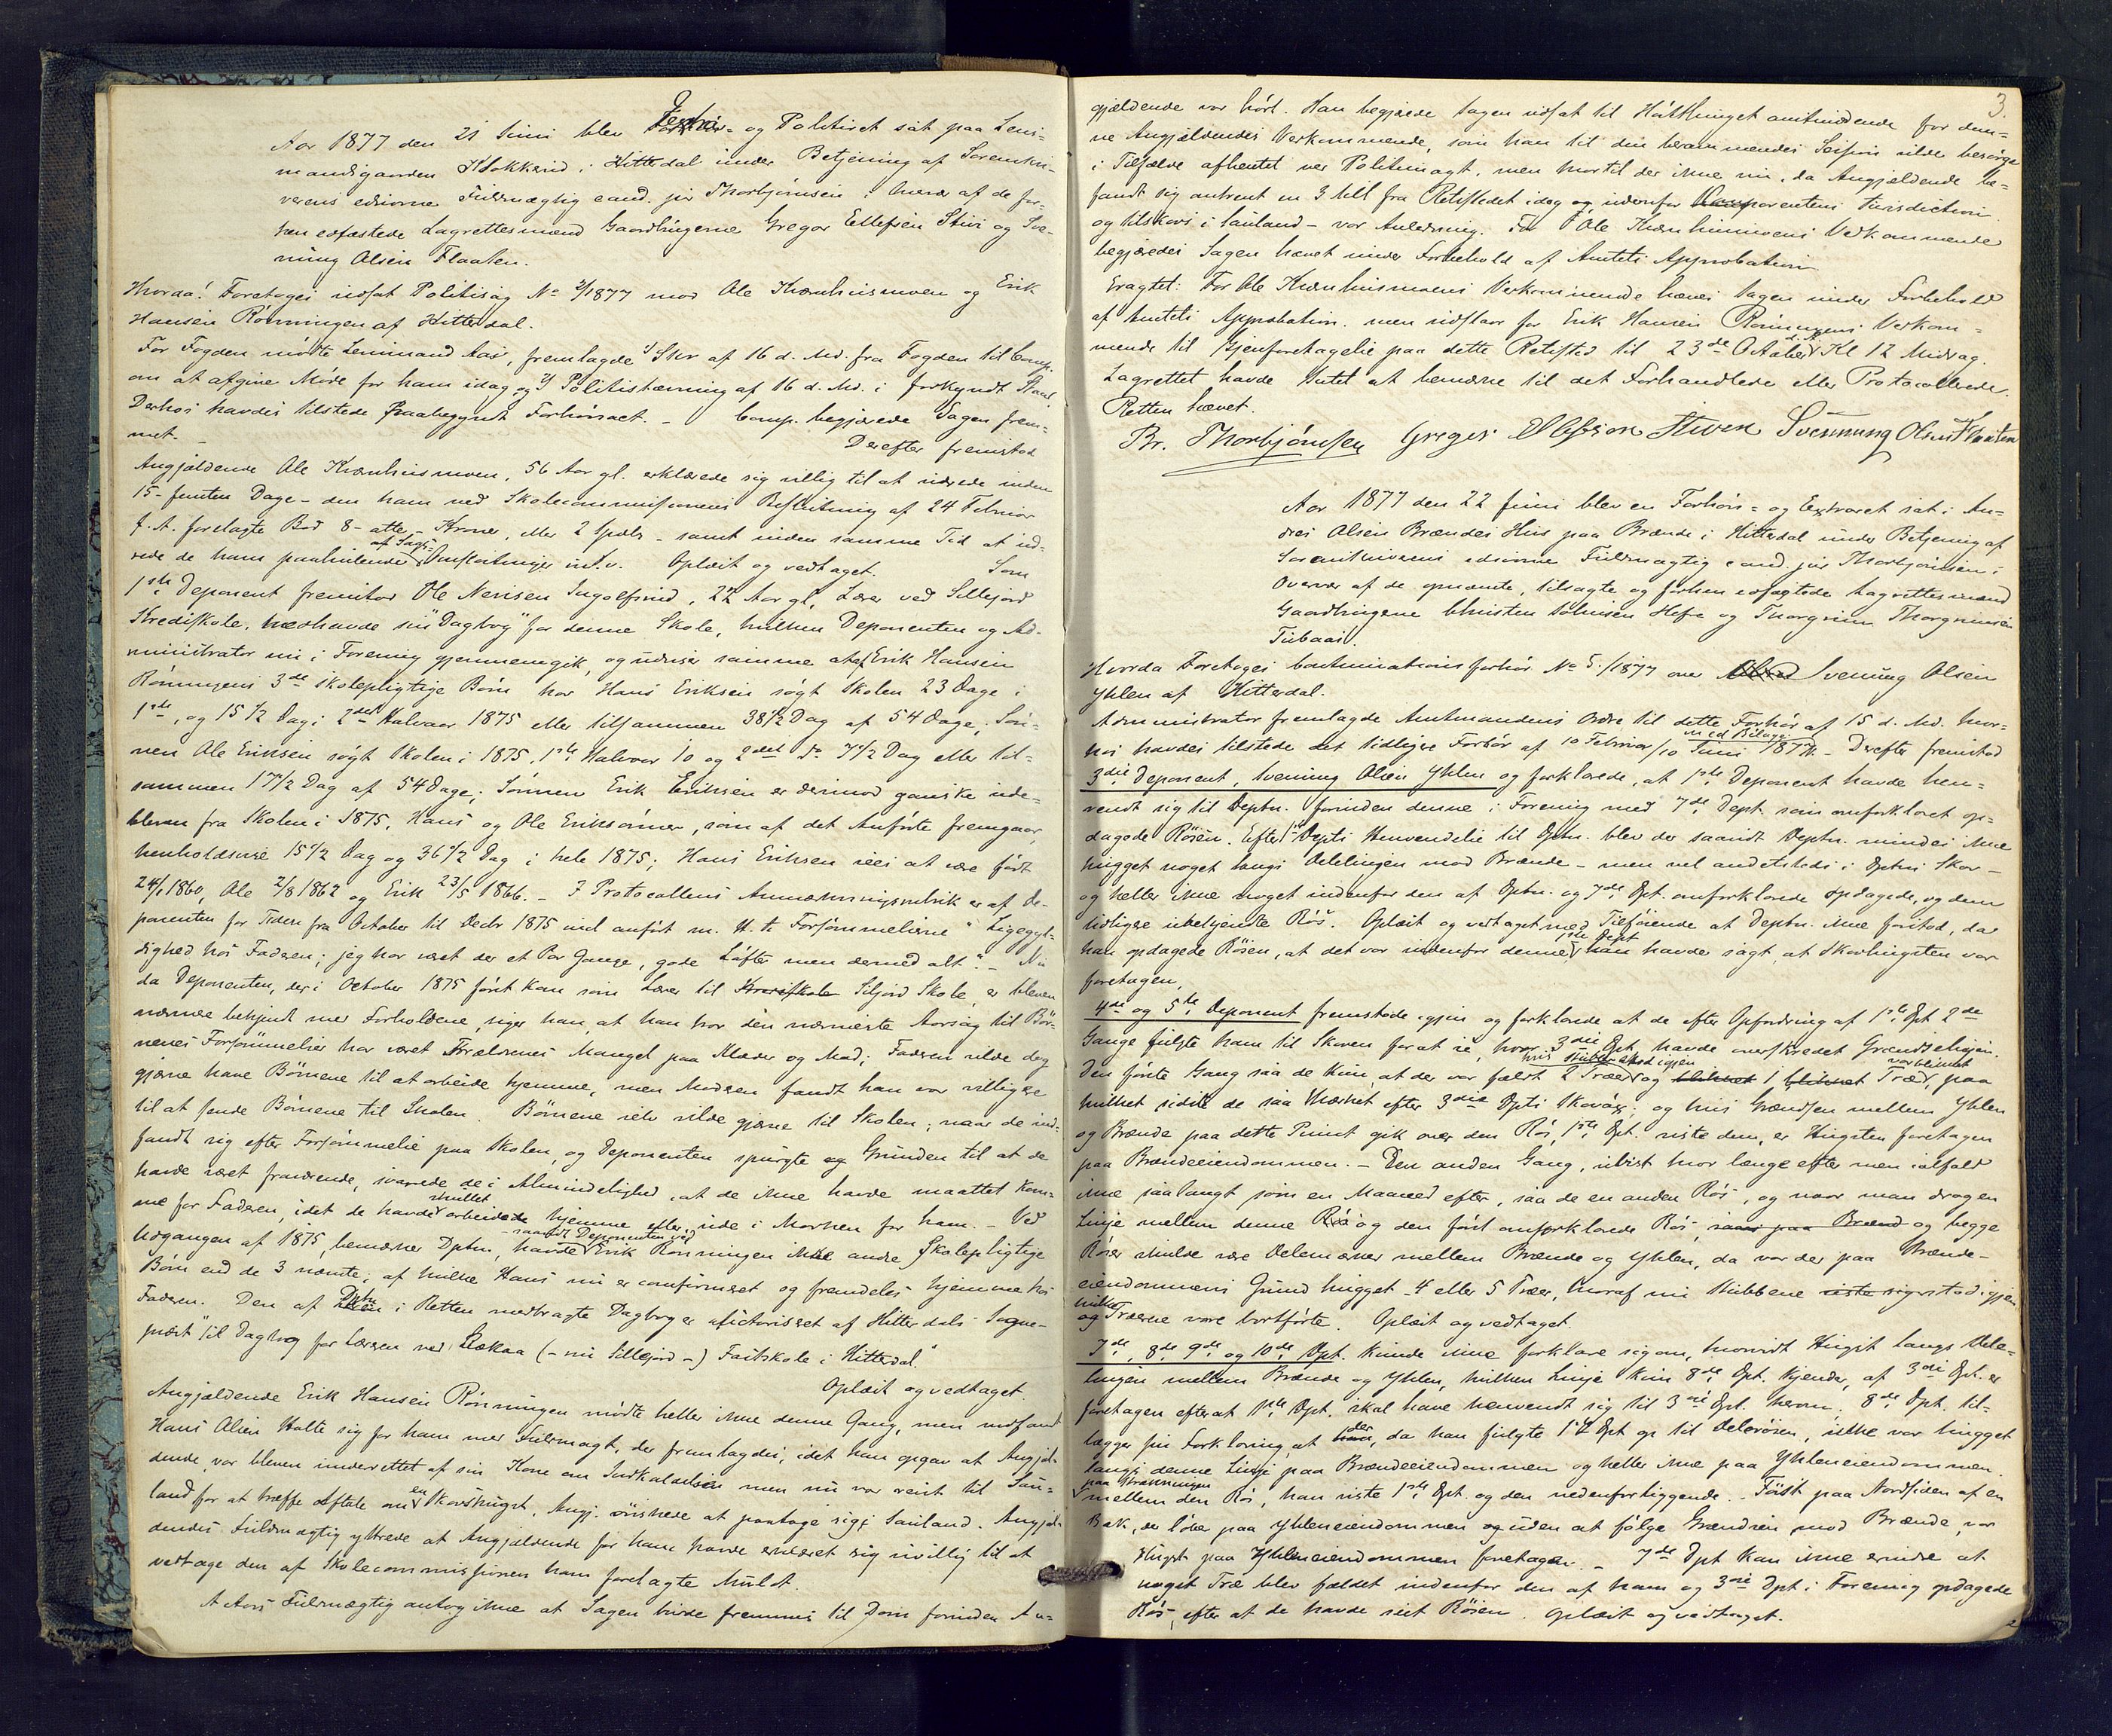 Aar 1877 den 21 Juni blev Forhörs- og Politiret sat paa Lens-
mandsgaarden Klokkerud i Hitterdal under Betjening af Sorenskri-
verens edsvorne Fuldmægtig cand. jur Thorbjörnsen i Overvær af de for-
hen edfæstede Lagrettesmænd Gaardbrugerne Gregar Ellefsen Stivi og Sve-
nung Olsen Flaaten.
Hvorda! Foretoges udsat Politisag No 4/1877 mod Ole Kvænhusmoen og Erik
Hansen Rönningen af Hitterdal.
For Fogden mödte Lensmand Aas, fremlagde 1) Skr af 16 d. Md. fra Fogden til Comp.
om at afgive Möde for ham idag og 2) Politistævning af 16 d. Md. i forkyndt Stand
Derhos havdes tilstede paabegyndt Forhörsact. - Comp. begjærede Sagen frem-
met. - Derefter fremstod
Angjældende Ole Kvænhusmoen, 56 Aar gl. erklærede sig villig til at udrede inden
15- femten Dage - den ham ved Skolecommissionens Beslutning af 24 Februar
f. A. forelagte Bod 8- otte - Kroner, eller 2 Spdlr - samt inden samme Tid at ud-
rede de ham paahvilende af Sags- Omkostninger m. v. Oplæst og vedtaget. Som
1ste Deponent fremstod Ole Nerisen Ingolfsrud, 22 Aar gl. Lærer ved Sillejord
Kredsskole, medhavde sin "Dagbog" for denne Skole, hvilken Deponenten og Ad-
ministrator nu i Forening gjennemgik, og udviser samme at af Erik Hansen
Rönningens 3de skolepligtige Börn har Hans Eriksen sögt Skolen 23 Dage i
1ste, og 15 1/2 Dag i 2det Halvaar 1875 eller tilsammen 38 1/2 Dag af 54 Dage; Sön-
nen Ole Eriksen sögt Skolen i 1875, 1ste Halvaar 10 og 2det Do 7 1/2 Dag eller til-
sammen 17 1/2 Dag af 54 Dage; Sönnen Erik Eriksen er derimod ganske ude-
bleven fra Skolen i 1875, Hans og Ole Eriksönner, som af det Anförte fremgaar,
henholdsvis 15 1/2 Dag og 36 1/2 Dag i hele 1875; Hans Eriksen sees at være födt
24/1 1860, Ole 2/8 1862 og Erik 23/5 1866. - I Protocollens Anmærkningsrubrik er af De-
ponenten for Tiden fra October til Decbr 1875 ind anfört m. H. t. Forsömmelserne "Ligegyl-
dighed hos Faderen; jeg har været der et Par Gange, gode Löfter men dermed alt." - Nu
da Deponenten, der i October 1875 först kom som Lærer til Kredsskole Siljord Skole, er bleven
nærmere bekjendt med Forholdene, siger han, at han tror den nærmeste Aarsag til Bör-
nenes Forsömmelser har været Forældrenes Mangel paa Klæder og Mad; Faderen vilde dog
gjærne have Börnene til at arbeide hjemme, men Moderen fandt han var villigere
til at sende Börnene til Skolen. Börnene selv vilde gjærne til Skolen; naar de ind-
fandt sig efter Forsömmelse paa Skolen, og Deponenten spurgte og Grunden til at de
havde været fraværende, svarede de i Almindelighed, at de ikke havde maattet kom-
me for Faderen, idet de havde skullet arbeide hjemme eller ude i Marken for ham. - Ved
Udgangen af 1875, bemærker Dptn, havde - saavidt Deponenten ved - Erik Rönningen ikke andre skolepligtige
Börn end de 3 nævnte; af hvilke Hans nu er confirmeret og fremdeles hjemme hos
Faderen. Den af Dptn i Retten medbragte Dagbog er autoriseret af Hitterdals Sogne-
præst "til Dagbog for Læreren ved Bækaa (- nu Sillejord -) Fastskole i Hitterdal."
Oplæst og vedtaget.
Angjældende Erik Hansen Rönningen mödte heller ikke denne Gang, men indfandt
Hans Olsen Holte sig for ham med Fuldmagt, der fremlagdes, idet han opgav at Angjæl-
dende var bleven underrettet af sin Kone om Indkaldelsen men nu var reist til Sau-
land for at træffe Aftale om en Skovshugst, Angj. önskede at paatage sig i Sauland. Angjæl-
dendes Fuldmægtig yttrede at Angjældende for ham havde erklæret sig uvillig til at
vedtage den af Skolecommissionen ham forelagte Mulct.
Actors Fuldmægtig antog ikke at Sagen burde fremmes til Dom forinden An-
3.
gjældende var hört. Han begjærede Sagen udsat til Höstthinget anstundende for den-
ne Angjældendes Vedkommende, som han til den berammendes Session vilde besörge
i Tilfælde afhentet ved Politimagt, men hvortil der ikke nu, da Angjældende be-
fandt sig omtrent en 3 Mil fra Retsstedet idag og udenfor Comparentens Jurisdiction
og tilskovs i Sauland - var Anledning. For Ole Kvænhusmoens Vedkommende
begjæredes Sagen hævet under Forbehold af Amtets Approbation
Eragtet: For Ole Kvænhusmoens Vedkommende hæves Sagen under Forbehold
af Amtets Approbation, men udstaar for Erik Hansen Rönningens Vedkom-
mende til Gjenforetagelse paa dette Retssted til 23de October d. A. Kl 12 Middag.
Lagrettet havde Intet at bemærke til det Forhandlede eller Protocollerede.
Retten hævet.
Br. Thorbjörnsen Greger Ellefson Stiven Svennung Olsen Flaaten
Aar 1877 den 22 Juni blev en Forhörs- og Extraret sat i An-
dres Olsen Brændes Hus paa Brænde i Hitterdal under Betjening af
Sorenskriverens edsvorne Fuldmægtig cand. jur Thorbjörnsen i
Overvær af de opnævnte, tilsagte og forhen edfæstede Lagrettesmænd
Gaardbrugerne Christen Johnsen Hofa og Thorgrim Thorgrimsen
Tubaas.
Hvorda Foretoges Continuationsforhör No 5/1877 over Svenung Olsen
Yhlen af Hitterdal.
Administrator fremlagde Amtmandens Ordre til dette Forhör af 15 d. Md. hvor-
hos havdes tilstede det tidligere Forhör af 10 Februar/10 Juni 1877 med Bilage. - Derefter fremstod
3die Deponent, Svenung Olsen Yhlen og forklarede, at 1ste Deponent havde hen-
vendt sig til Deptn. forinden denne i Forening med 7de Dept. som omforklaret op-
dagede Rösen. Efter 1ste Depts Henvendelse til Dptn. blev der saavidt Deptn. mindes ikke
hugget noget langs Delelingen mod Brænde - men vel andetsteds i Dptns Skov -
og heller ikke noget indenfor den af Dptn. og 7de Dpt. omforklarede opdagede, og dem
tidligere ubekjendte Rös. Oplæst og vedtaget med Tilföiende at Deptn. ikke forstod, da
han opdagede Rösen, at det var indenfor denne, 1ste Dept han havde sagt, at Skovhugsten var
foretagen,
4de og 5te Deponent fremstode igjen og forklarede at de efter Opfordring af 1ste Dpt 2de
Gange fulgte ham til Skoven for at se, hvor 3die Dpt. havde overskredet Grændselinjen.
Den förste Gang saa de kun, at der var fældt 2 Træer hvis Stubbe stod igjen og blinket 1 blinket Træ var blinket, paa
hvilket sidste de saa Mærket efter 3die Dpts Skovöxe; og hvis Grændsen mellem Yhlen
og Brænde paa dette Punct gik over den Rös, 1ste Dpt. viste dem, er Hugsten foretagen
paa Brændeeiendommen. - Den anden Gang, uvist hvor længe efter men ialfald
ikke saalangt som en Maaned efter, saa de en anden Rös, og naar man drager
Linje mellem denne Rös og den först omforklarede Rös, saa paa Brænd og begge
Röser skulde være Delemærker mellem Brænde og Yhlen, da var der paa Brænde-
eiendommens Grund hugget 4 eller 5 Træer, hvoraf nu Stubbene viste sig stod igjen
og hvilke Træerne vare bortförte. Oplæst og vedtaget.
7de, 8de 9de og 10de Dpt. kunde ikke forklare sig om, hvorvidt Hugst langs Dele-
lingen mellem Brænde og Yhlen, hvilken Linje kun 8de Dpt. kjender, af 3die Dpt. er
foretagen efterat 1ste Dpt. skal have henvendt sig til 3die Dpt. herom. 8de Dpt. til-
lægger sin Forklaring at der, da han fulgte 1ste Dpt op til Delerösen, ikke var hugget
langs denne Linje paa Brændeeiendommen og heller ikke paa Yhleneiendommen
paa Strækningen mellem den Rös, han viste 1ste Dpt. og den nedenforliggende. - Först paa Nordsiden af en
Bæk, der löber paa Yhleneiendommen og uden at fölge Grændsen mod Brænde, var
Hugst paa Yhleneiendommen foretagen. - 7de Dpt kan ikke erindre at
noget Træ blev fældet indenfor den af ham og 3die Dpt. i Forening opdagede
Rös, efter at de havde seet Rösen. Oplæst og vedtaget.